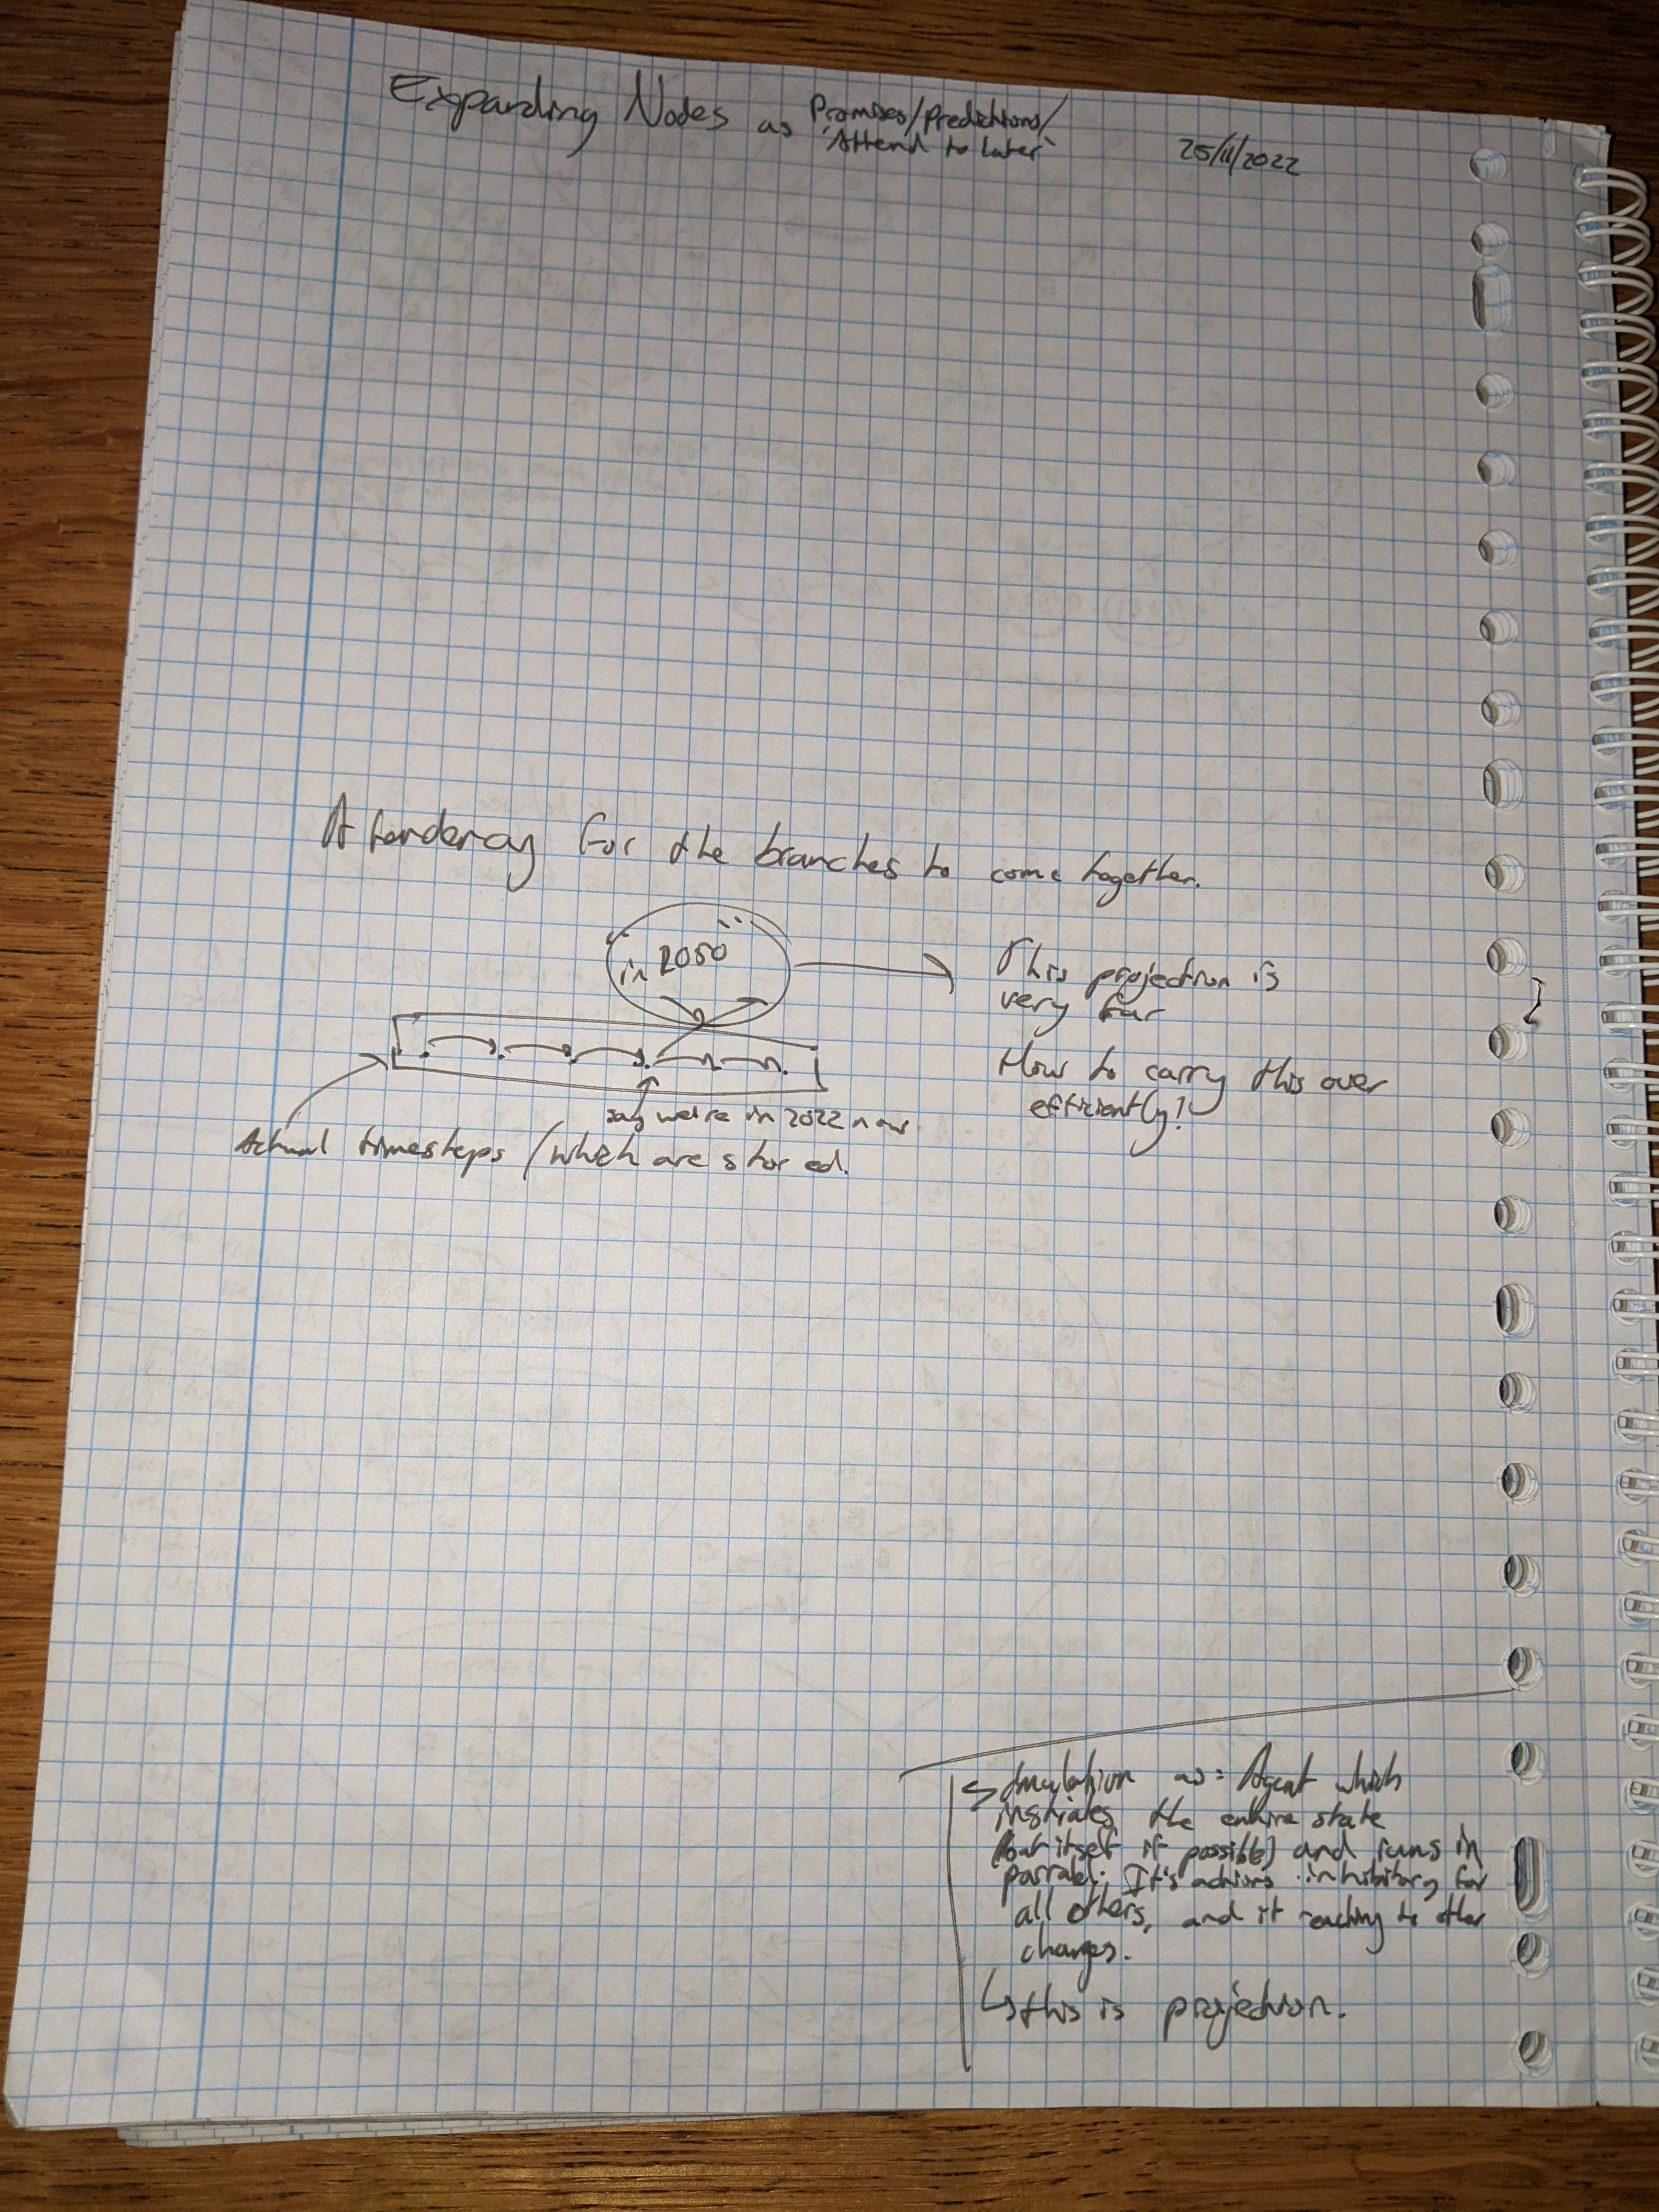 Expanding Nodes as Promises/Predictions/
'Attend to Later'
25/11/2022
A tendency for the branches to come together.
in 2050
This projection is
very far
How to carry this over
efficiently?
say we're in 2022 now
Actual timesteps (which are stored.
Simulation as: Agent which
the entire state
itself if possible) and runs in
It's actions inhibitory for
all others, and it to other
changes.
this is projection.